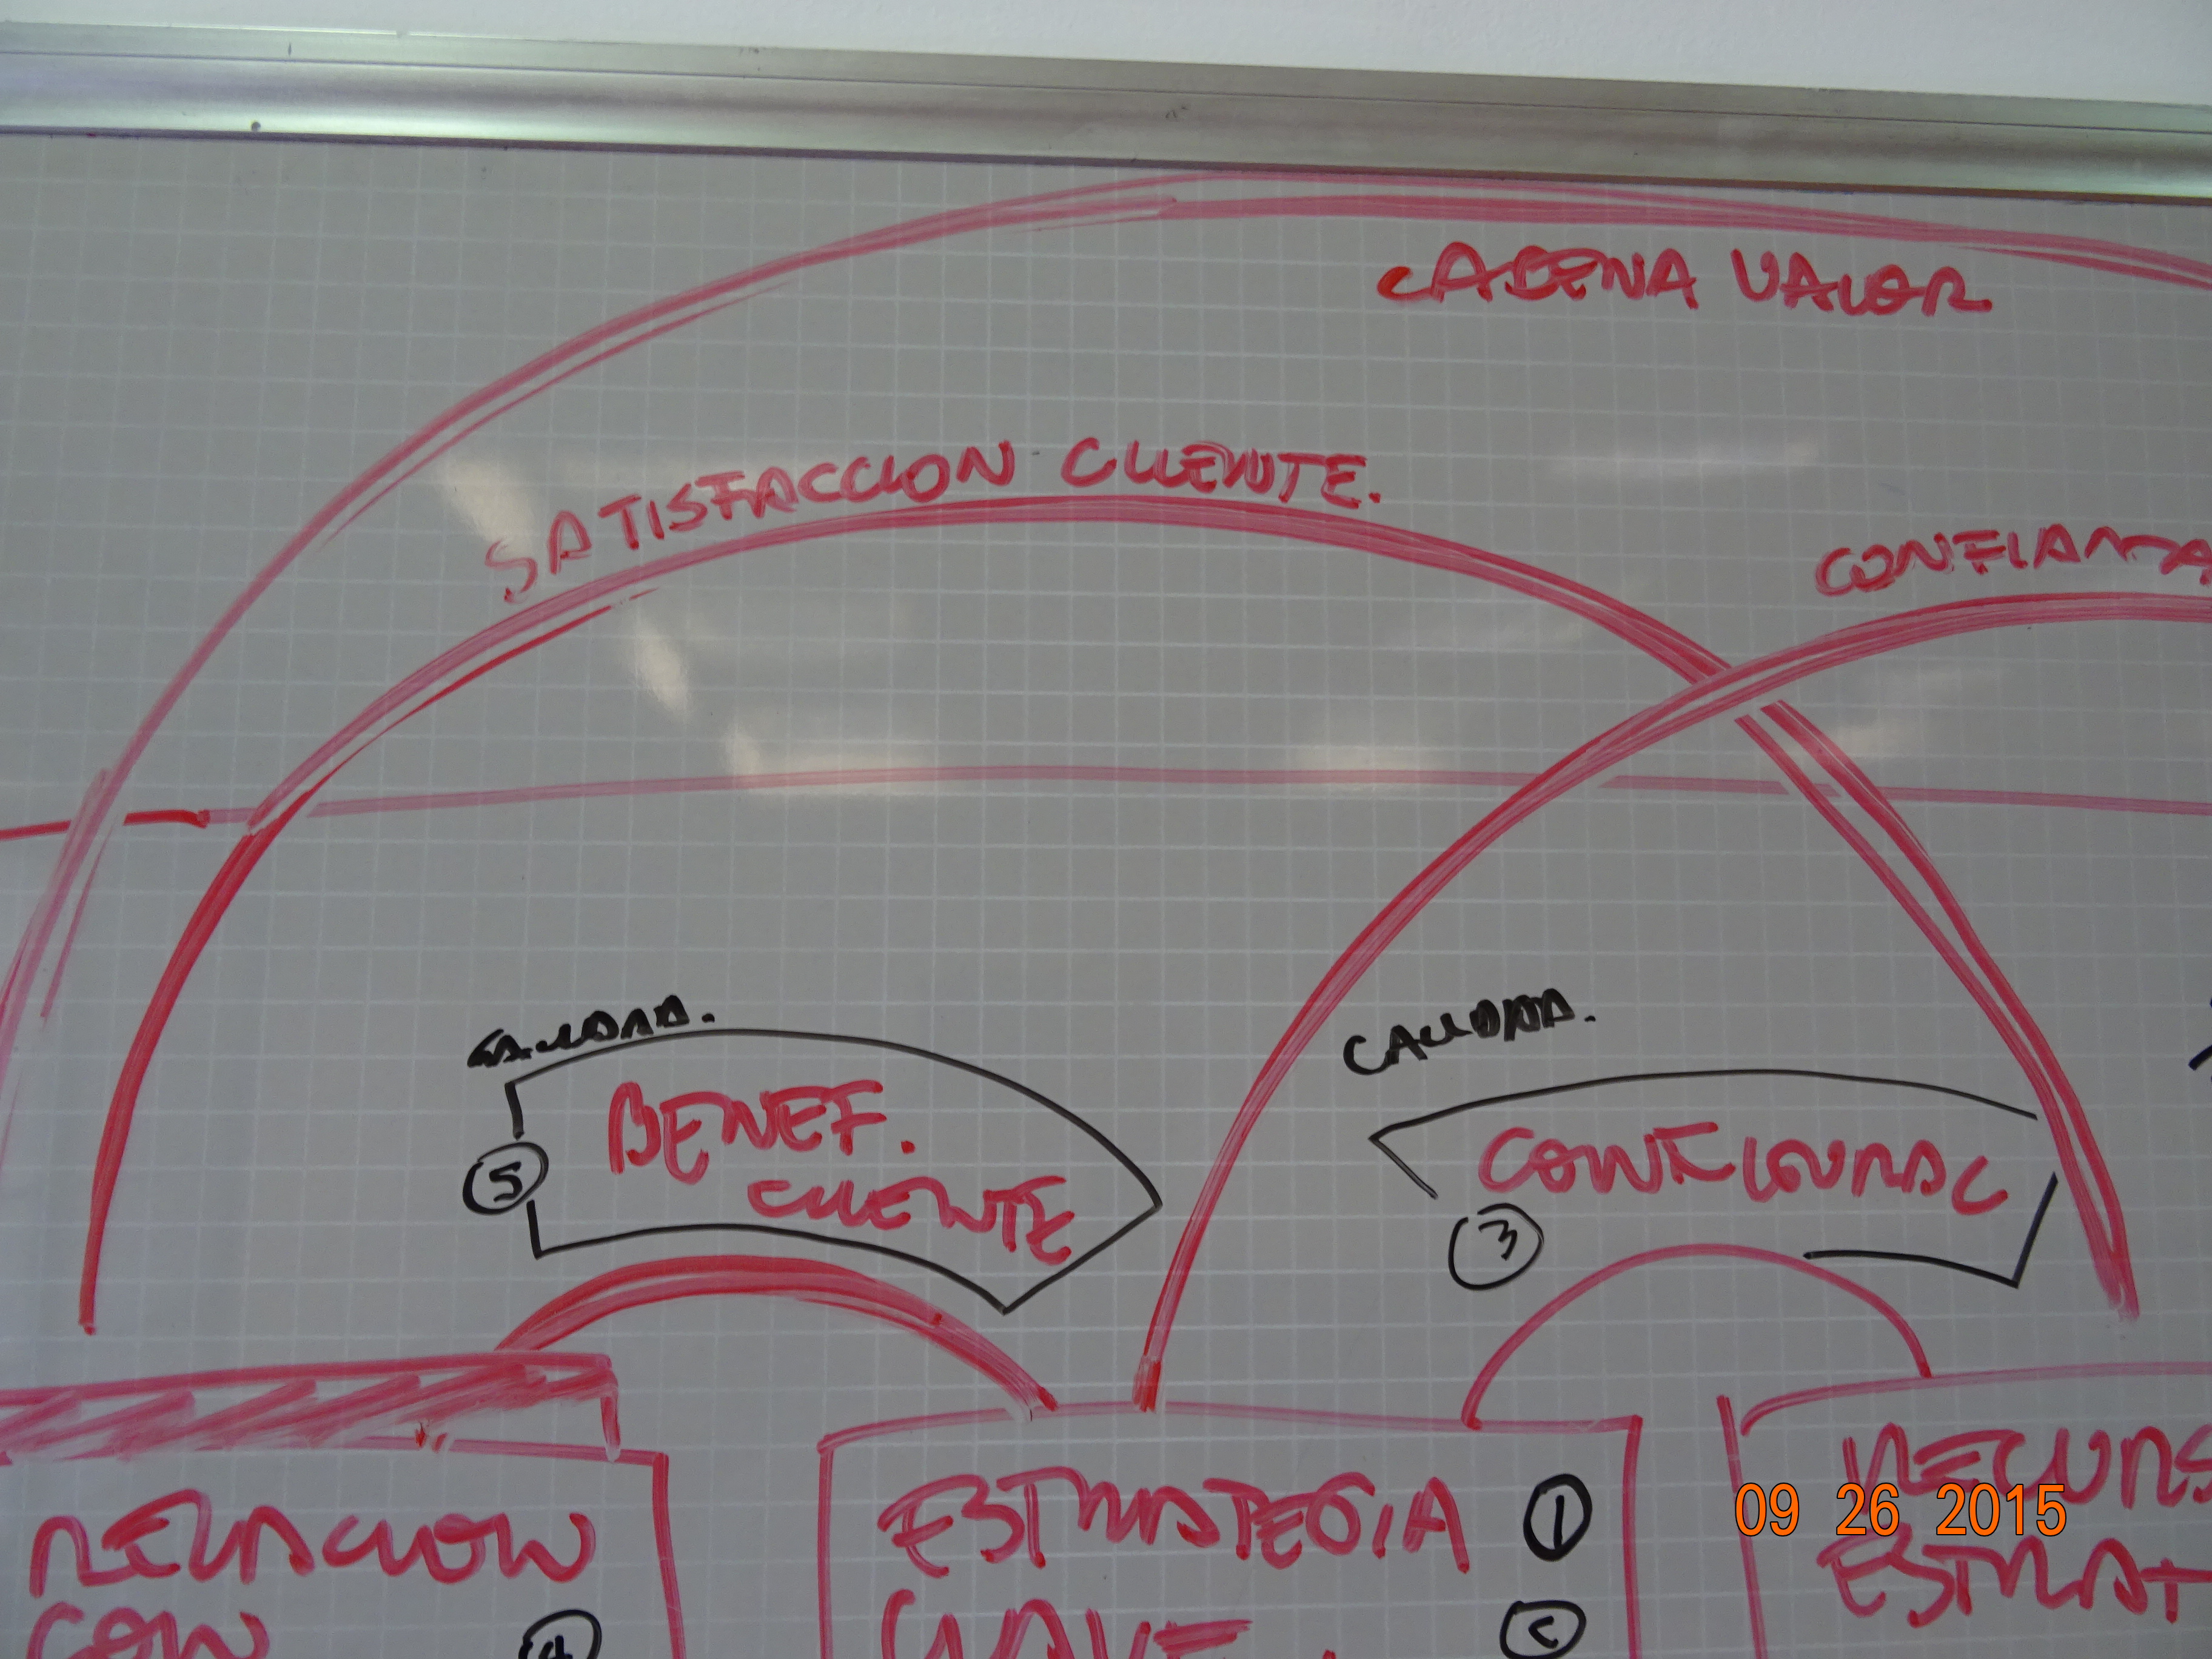 CADENA VALOR
SATISFACCION CLIENTE.
CONFIANZA
CALIDAD.
CALIDAD.
BENEF.
CLIENTE
5
CONFIGURAC
3
RELACION
CON
4
ESTRATEGIA
CLAVE.
1
RECURS
ESTRAT
09 26 2015